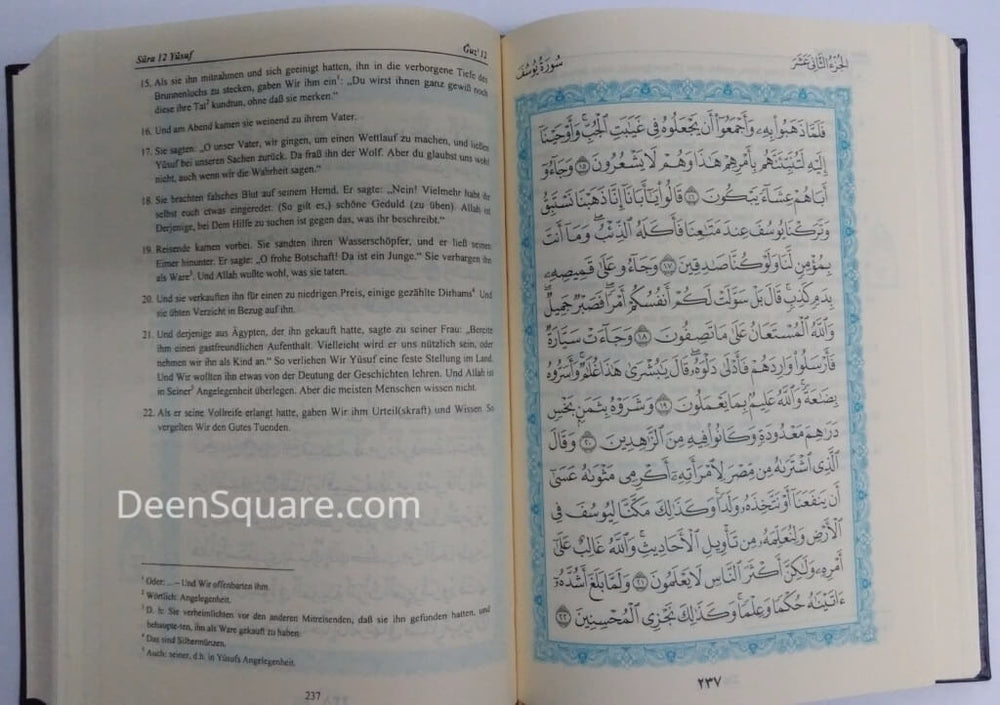 Sūra 12 Yūsuf
Ǧuz' 12
15. Als sie ihn mitnahmen und sich geeinigt hatten, ihn in die verborgene Tiefe des
Brunnenlochs zu stecken, gaben Wir ihm ein¹: „Du wirst ihnen ganz gewiß noch
diese ihre Tat² kundtun, ohne daß sie merken.“
16. Und am Abend kamen sie weinend zu ihrem Vater.
17. Sie sagten: „O unser Vater, wir gingen, um einen Wettlauf zu machen, und ließen
Yūsuf bei unseren Sachen zurück. Da fraß ihn der Wolf. Aber du glaubst uns wohl
nicht, auch wenn wir die Wahrheit sagen.“
18. Sie brachten falsches Blut auf seinem Hemd. Er sagte: „Nein! Vielmehr habt ihr
selbst euch etwas eingeredet. (So gilt es,) schöne Geduld (zu üben). Allah ist
Derjenige, bei Dem Hilfe zu suchen ist gegen das, was ihr beschreibt.“
19. Reisende kamen vorbei. Sie sandten ihren Wasserschöpfer, und er ließ seinen
Eimer hinunter. Er sagte: „O frohe Botschaft! Da ist ein Junge.“ Sie verbargen ihn
als Ware³. Und Allah wußte wohl, was sie taten.
20. Und sie verkauften ihn für einen zu niedrigen Preis, einige gezählte Dirhams⁴. Und
sie übten Verzicht in Bezug auf ihn.
21. Und derjenige aus Ägypten, der ihn gekauft hatte, sagte zu seiner Frau: „Bereite
ihm einen gastfreundlichen Aufenthalt. Vielleicht wird er uns nützlich sein, oder
nehmen wir ihn als Kind an.“ So verliehen Wir Yūsuf eine feste Stellung im Land.
Und Wir wollten ihn etwas von der Deutung der Geschichten lehren. Und Allah ist
in Seiner⁵ Angelegenheit überlegen. Aber die meisten Menschen wissen nicht.
22. Als er seine Vollreife erlangt hatte, gaben Wir ihm Urteil(skraft) und Wissen. So
vergelten Wir den Gutes Tuenden.
DeenSquare.com
¹ Oder: ... – Und Wir offenbarten ihm.
² Wörtlich: Angelegenheit.
³ D. h: Sie verheimlichten vor den anderen Mitreisenden, daß sie ihn gefunden hatten, und
behaupte-ten, ihn als Ware gekauft zu haben.
⁴ Das sind Silbermünzen.
⁵ Auch: seiner, d.h. in Yūsufs Angelegenheit.
237
الجزء الثاني عشر
سورة يوسف
فَلَمَّا ذَهَبُوا۟ بِهِۦ وَأَجْمَعُوٓا۟ أَن يَجْعَلُوهُ فِى غَيَـٰبَتِ ٱلْجُبِّ ۚ وَأَوْحَيْنَآ
إِلَيْهِ لَتُنَبِّئَنَّهُم بِأَمْرِهِمْ هَـٰذَا وَهُمْ لَا يَشْعُرُونَ ١٥ وَجَآءُوٓ
أَبَاهُمْ عِشَآءً يَبْكُونَ ١٦ قَالُوا۟ يَـٰٓأَبَانَآ إِنَّا ذَهَبْنَا نَسْتَبِقُ
وَتَرَكْنَا يُوسُفَ عِندَ مَتَـٰعِنَا فَأَكَلَهُ ٱلذِّئْبُ ۖ وَمَآ أَنتَ
بِمُؤْمِنٍ لَّنَا وَلَوْ كُنَّا صَـٰدِقِينَ ١٧ وَجَآءُو عَلَىٰ قَمِيصِهِۦ
بِدَمٍ كَذِبٍ ۚ قَالَ بَلْ سَوَّلَتْ لَكُمْ أَنفُسُكُمْ أَمْرًا ۖ فَصَبْرٌ جَمِيلٌ ۖ
وَٱللَّهُ ٱلْمُسْتَعَانُ عَلَىٰ مَا تَصِفُونَ ١٨ وَجَآءَتْ سَيَّارَةٌ
فَأَرْسَلُوا۟ وَارِدَهُمْ فَأَدْلَىٰ دَلْوَهُۥ ۖ قَالَ يَـٰبُشْرَىٰ هَـٰذَا غُلَـٰمٌ ۚ وَأَسَرُّوهُ
بِضَـٰعَةً ۚ وَٱللَّهُ عَلِيمٌۢ بِمَا يَعْمَلُونَ ١٩ وَشَرَوْهُ بِثَمَنٍۭ بَخْسٍ
دَرَٰهِمَ مَعْدُودَةٍ وَكَانُوا۟ فِيهِ مِنَ ٱلزَّٰهِدِينَ ٢٠ وَقَالَ
ٱلَّذِى ٱشْتَرَىٰهُ مِن مِّصْرَ لِٱمْرَأَتِهِۦٓ أَكْرِمِى مَثْوَىٰهُ عَسَىٰٓ
أَن يَنفَعَنَآ أَوْ نَتَّخِذَهُۥ وَلَدًا ۚ وَكَذَٰلِكَ مَكَّنَّا لِيُوسُفَ فِى
ٱلْأَرْضِ وَلِنُعَلِّمَهُۥ مِن تَأْوِيلِ ٱلْأَحَادِيثِ ۚ وَٱللَّهُ غَالِبٌ عَلَىٰٓ
أَمْرِهِۦ وَلَـٰكِنَّ أَكْثَرَ ٱلنَّاسِ لَا يَعْلَمُونَ ٢١ وَلَمَّا بَلَغَ أَشُدَّهُۥٓ
ءَاتَيْنَـٰهُ حُكْمًا وَعِلْمًا ۚ وَكَذَٰلِكَ نَجْزِى ٱلْمُحْسِنِينَ ٢٢
٢٣٧